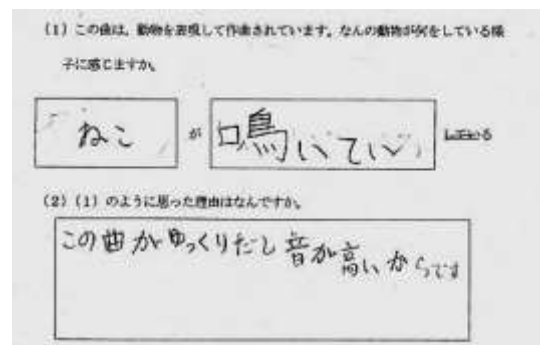 (1) この曲は、動物を表現して作曲されています。なんの動物が何をしている様
子に感じますか。
ねこ が 鳴いている している
(2) (1) のように思った理由はなんですか。
この曲がゆっくりだし音が高いからです